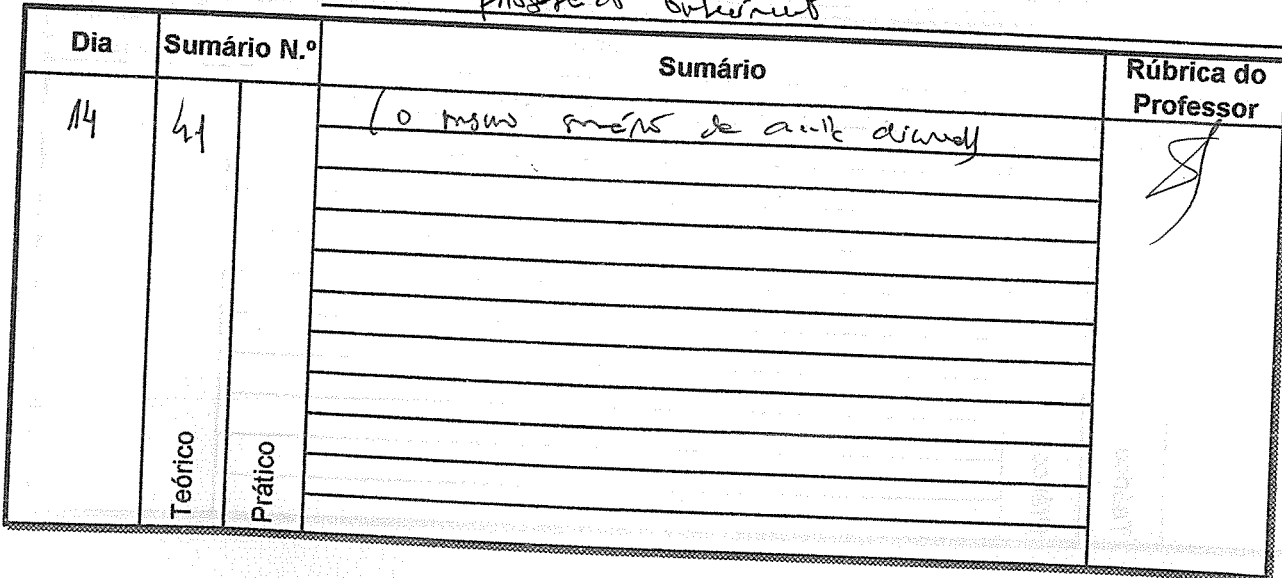 Dia Sumário N.º Sumário Rúbrica do Professor
14 41 (o mesmo sumário da aula diurna)
Teórico
Prático